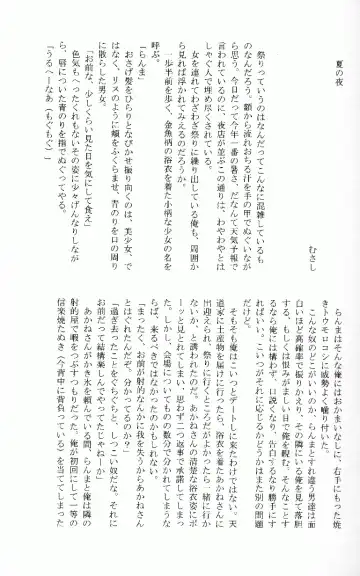 夏の夜
むさし
祭りっていうのはなんだってこんなに混雑しているも
のなんだろう。額から流れおちる汗を手の甲でぬぐいなが
ら思う。今日だって今年一番の暑さ、だなんて天気予報で
言われているのに、夜店が並ぶこの通りは、わやわやとは
しゃぐ人で埋め尽くされている。
女を連れてわざわざ祭りに繰り出している俺も、周囲か
ら見れば浮かれてみえるのだろうか。
一歩半前を歩く、金魚柄の浴衣を着た小柄な少女の名を
呼ぶ。
「らんま」
おさげ髪をひらりとなびかせ振り向くのは、美少女、で
はなく、リスのように頬をふくらませ、青のりを口の周り
に散らした男女。
「お前な、少しくらい見た目を気にして食え」
色気もへったくれもないその姿に少々げんなりしなが
ら、唇についた青のりを指でぬぐってやる。
「うるへーなあ（もぐもぐ）」
らんまはそんな俺にはおかまいなしに、右手にもった焼
きトウモロコシに威勢よく噛り付いた。
こんな奴のどこがいいのか、らんまとすれ違う男達は面
白いほど高確率で振りかえり、その隣にいる俺を見て落胆
する、もしくは恨みがましい目で俺を観む。そんなことす
るなら俺には構わず、口説くなり、告白するなり勝手にす
ればいい。こいつがそれに応じるかどうかはまた別の問題
だけど。
そもそも俺はこいつとデートしに来たわけではない。天
道家に土産物を届けに行ったら、浴衣を着たあかねさんに
出迎えられ、祭りに行くところだがよかったら一緒に行か
ないか、と誘われたのだ。あかねさんの清楚な浴衣姿にボ
ーッと見とれてしまい、思わず二つ返事で承諾してしまっ
たが、会場についてものの数分で分かれてしまうな
らば、来るべきではなかったのかもしれない。
「まったく、お前が射的なんかに夢中になるからあかねさん
とはぐれたんだぞ。分かってるのか？」
「過ぎ去ったことをぐちぐちと、しつこい奴だな。それに
お前だって結構楽しんでやってたじゃねーか」
あかねさんがかき氷を頼んでいる間、らんまと俺は隣の
射的屋で暇をつぶすつもりだった。俺が初回にして一等の
信楽焼たぬき（今背中に背負っている）を当ててしまった